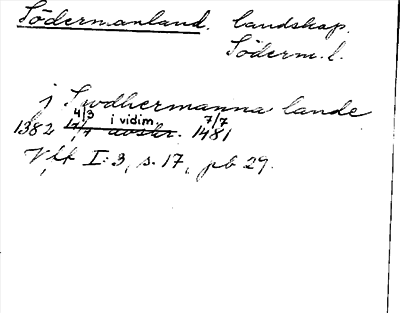 Södermanland. landskap.
Söderm. l.
j Swdhermanna lande
1382 4/3 i vidim. 7/7 1481
Vjk I:3, s. 17, pb 27.